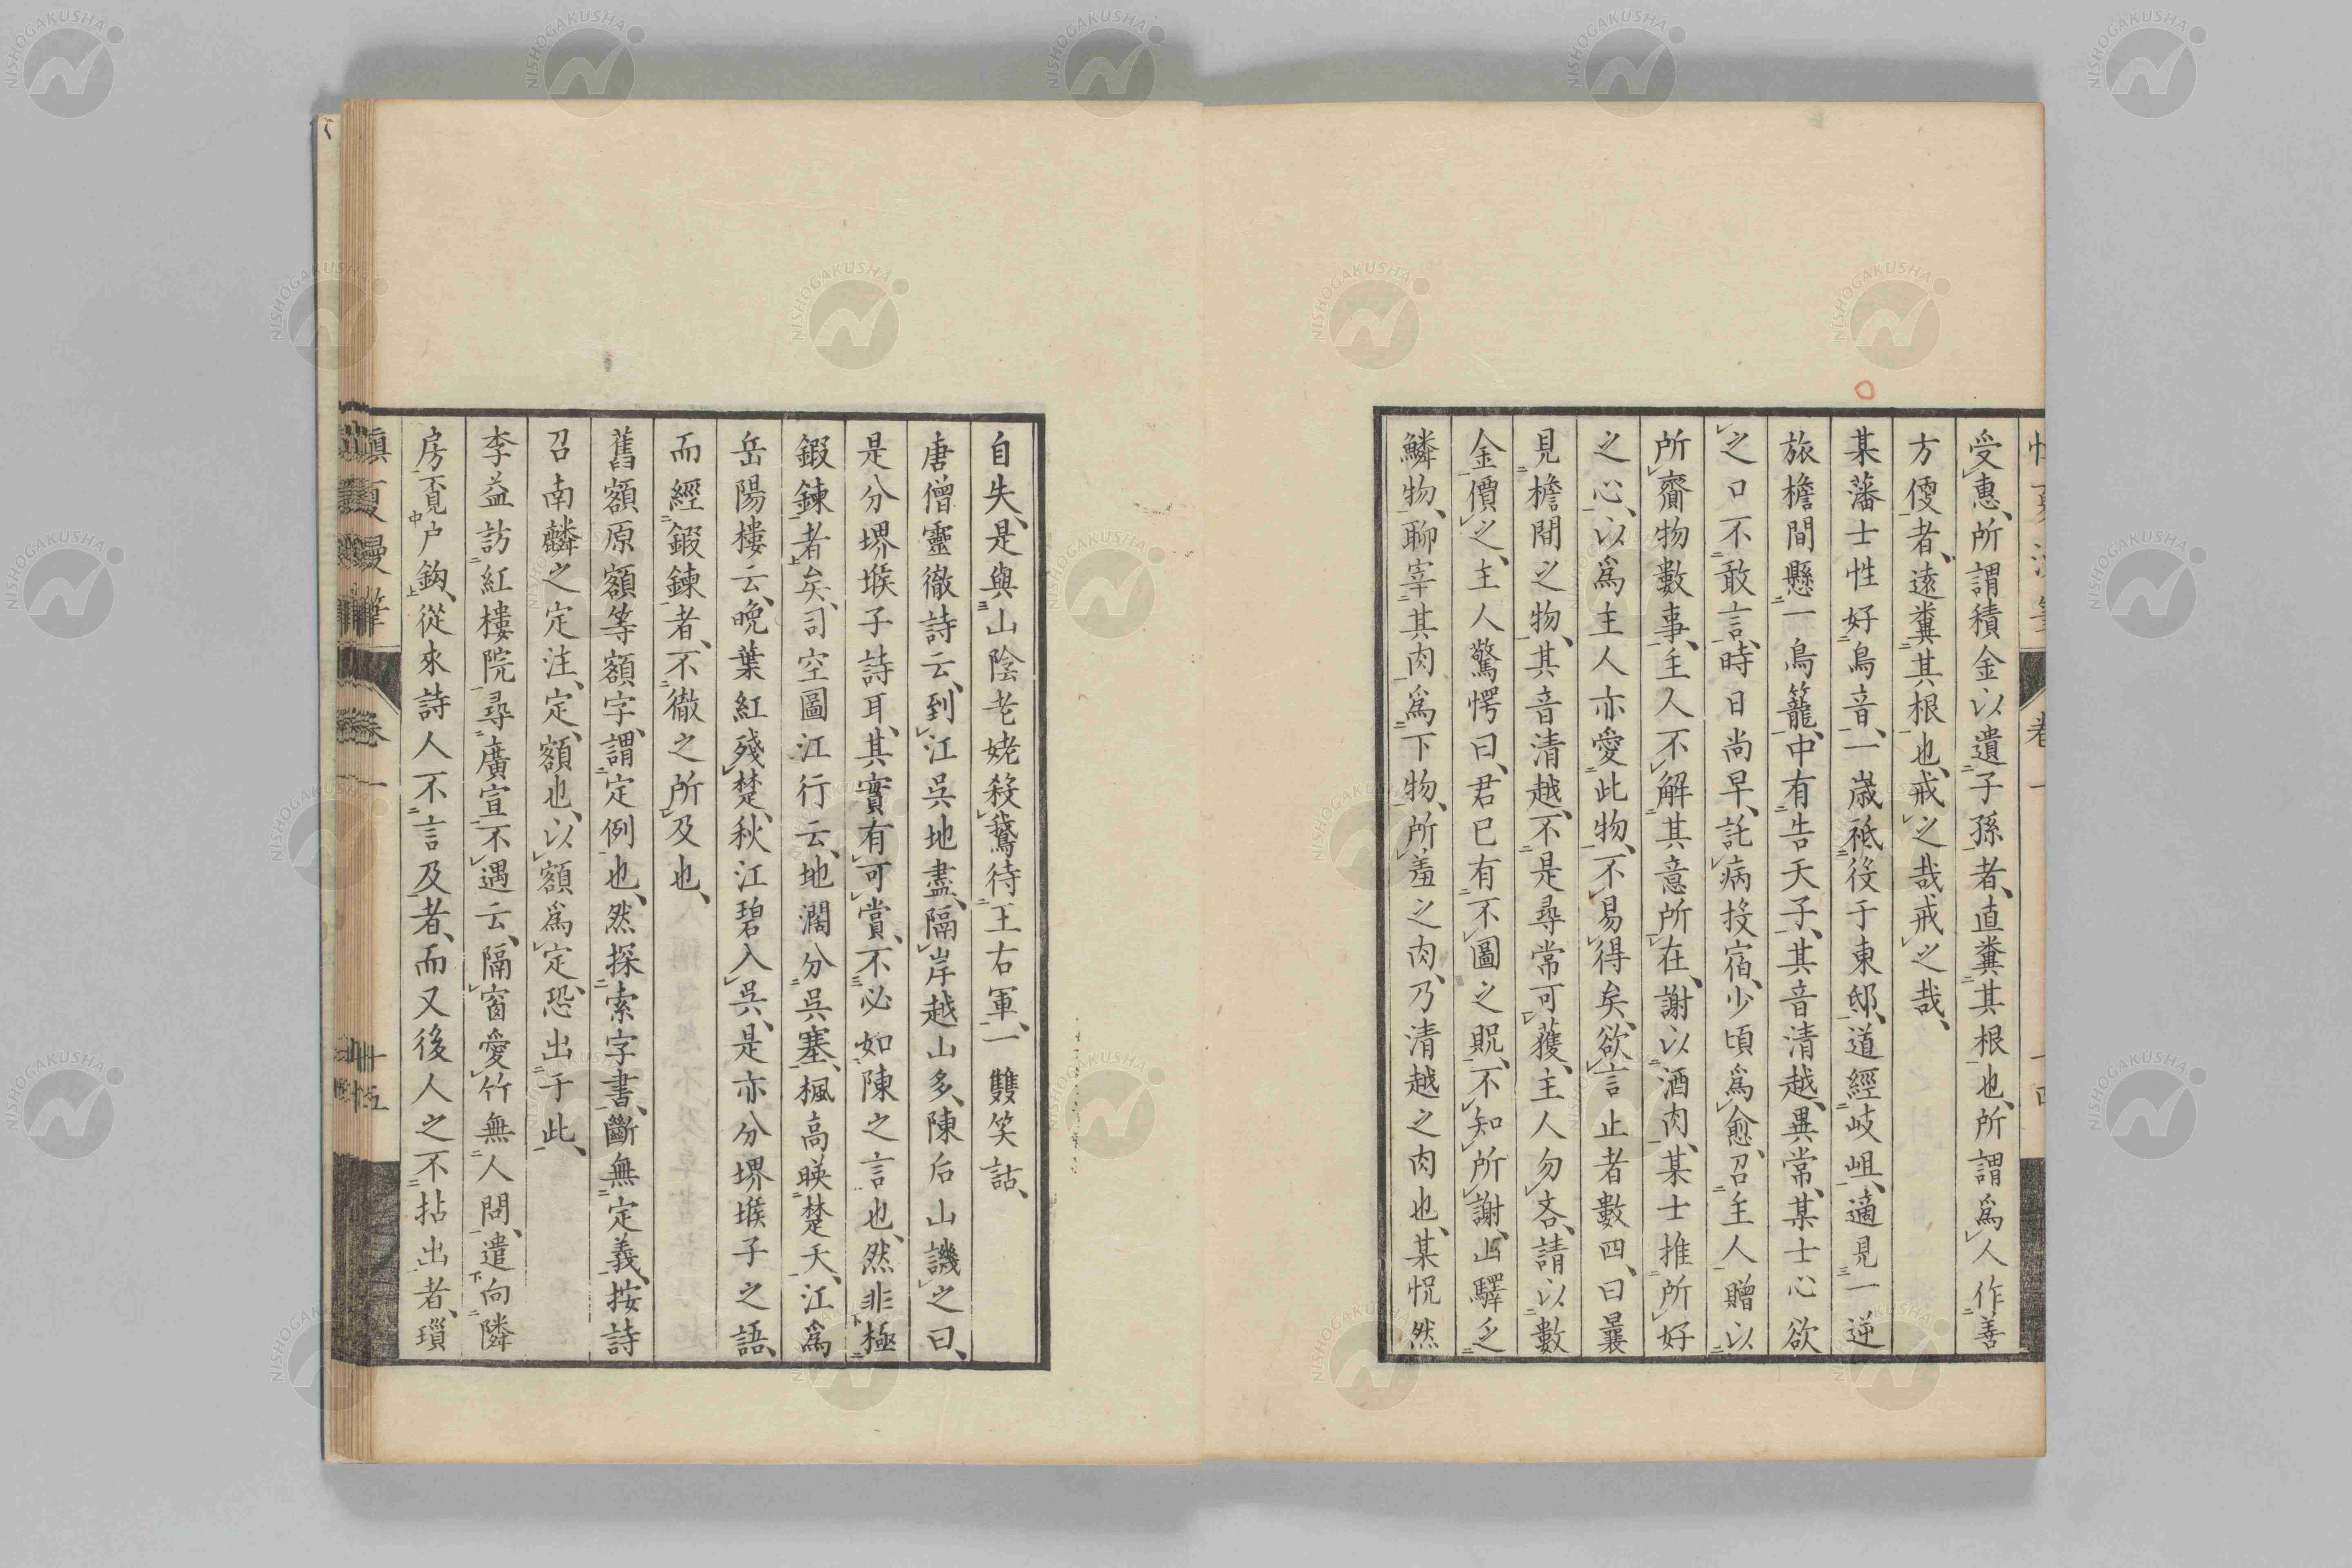 受惠、所謂積金以遺子孫者、直糞其根也、所謂爲人作善
方便者、遠糞其根也、戒之哉戒之哉、
某藩士性好鳥音、一歲祗役于東邸、道經岐岨、適見一逆
旅檐間懸一鳥籠、中有告天子、其音清越異常、某士心欲
之口不敢言、時日尚早、託病投宿、少頃爲愈、召主人贈以
所齎物數事、主人不解其意所在、謝以酒肉、某士推所好
之心、以爲主人亦愛此物、不易得矣、欲言止者數四、曰曩
見檐間之物、其音清越、不是尋常可獲、主人勿吝、請以數
金價之、主人驚愕曰、君已有不圖之貺、不知所謝、山驛乏
鱗物、聊宰其肉爲下物、所羞之肉、乃清越之肉也、某怳然
自失、是與山陰老姥殺鵞待王右軍、一雙笑話、
唐僧靈徹詩云、到江吳地盡、隔岸越山多、陳后山譏之曰、
是分堺堠子詩耳、其實有可賞、不必如陳之言也、然非極
鍜鍊者矣、司空圖江行云、地濶分吳塞、楓高暎楚天、江爲
岳陽樓云、晩葉紅殘楚、秋江碧入吳、是亦分堺堠子之語、
而經鍜鍊者、不徹之所及也、
舊額原額等額字、謂定例也、然探索字書、斷無定義、按詩
召南麟之定注、定、額也、以額爲定、恐出于此、
李益訪紅樓院尋廣宣不遇云、隔窗愛竹無人問、遣向隣
房覓户鈎、從來詩人不言及者、而又後人之不拈出者、瑣
慎夏漫筆 卷一 十五
卷一
NISHOGAKUSHA